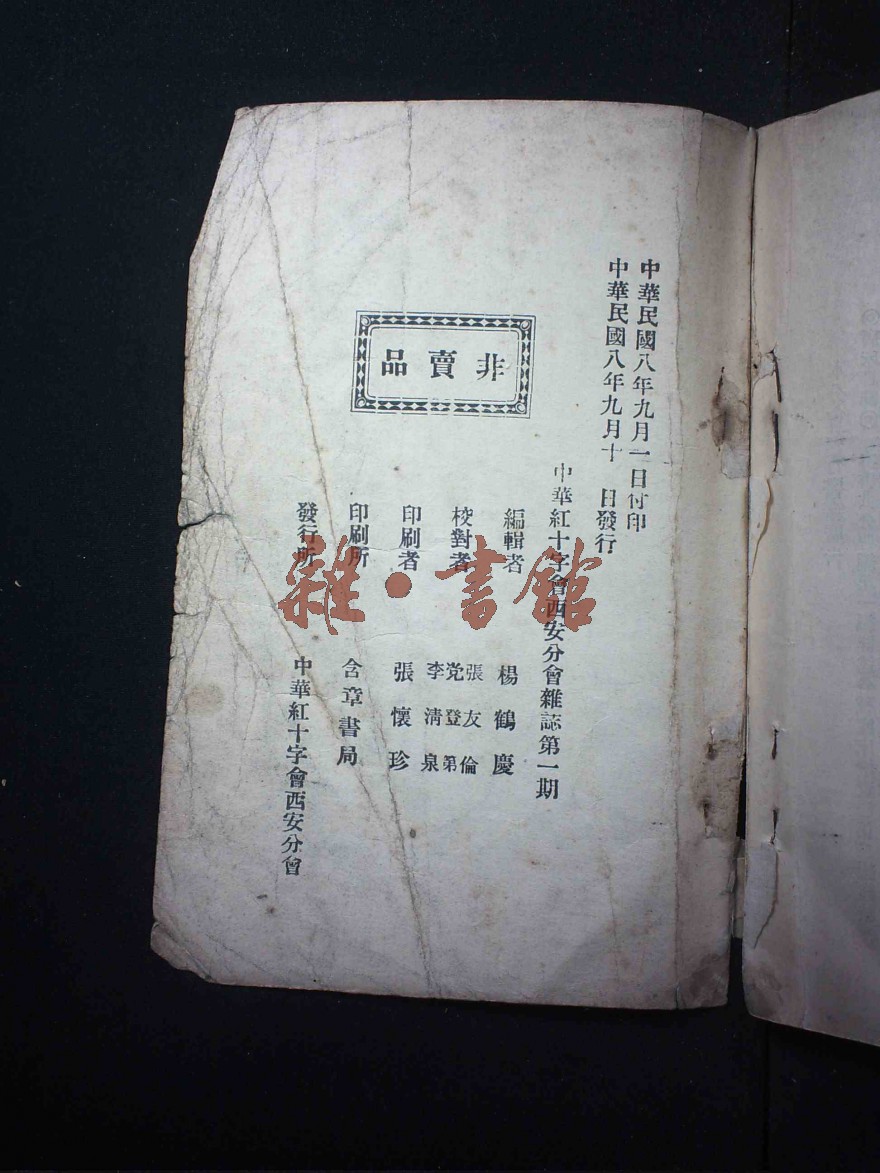 中華民國八年九月一日付印
中華民國八年九月十 日發行
中華紅十字會西安分會雜誌第一期
編輯者 楊鶴慶
校對者 張友倫 党登第 李清泉
印刷者 張懷珍
印刷所 含章書局
發行所 中華紅十字會西安分會
非賣品
雜·書館